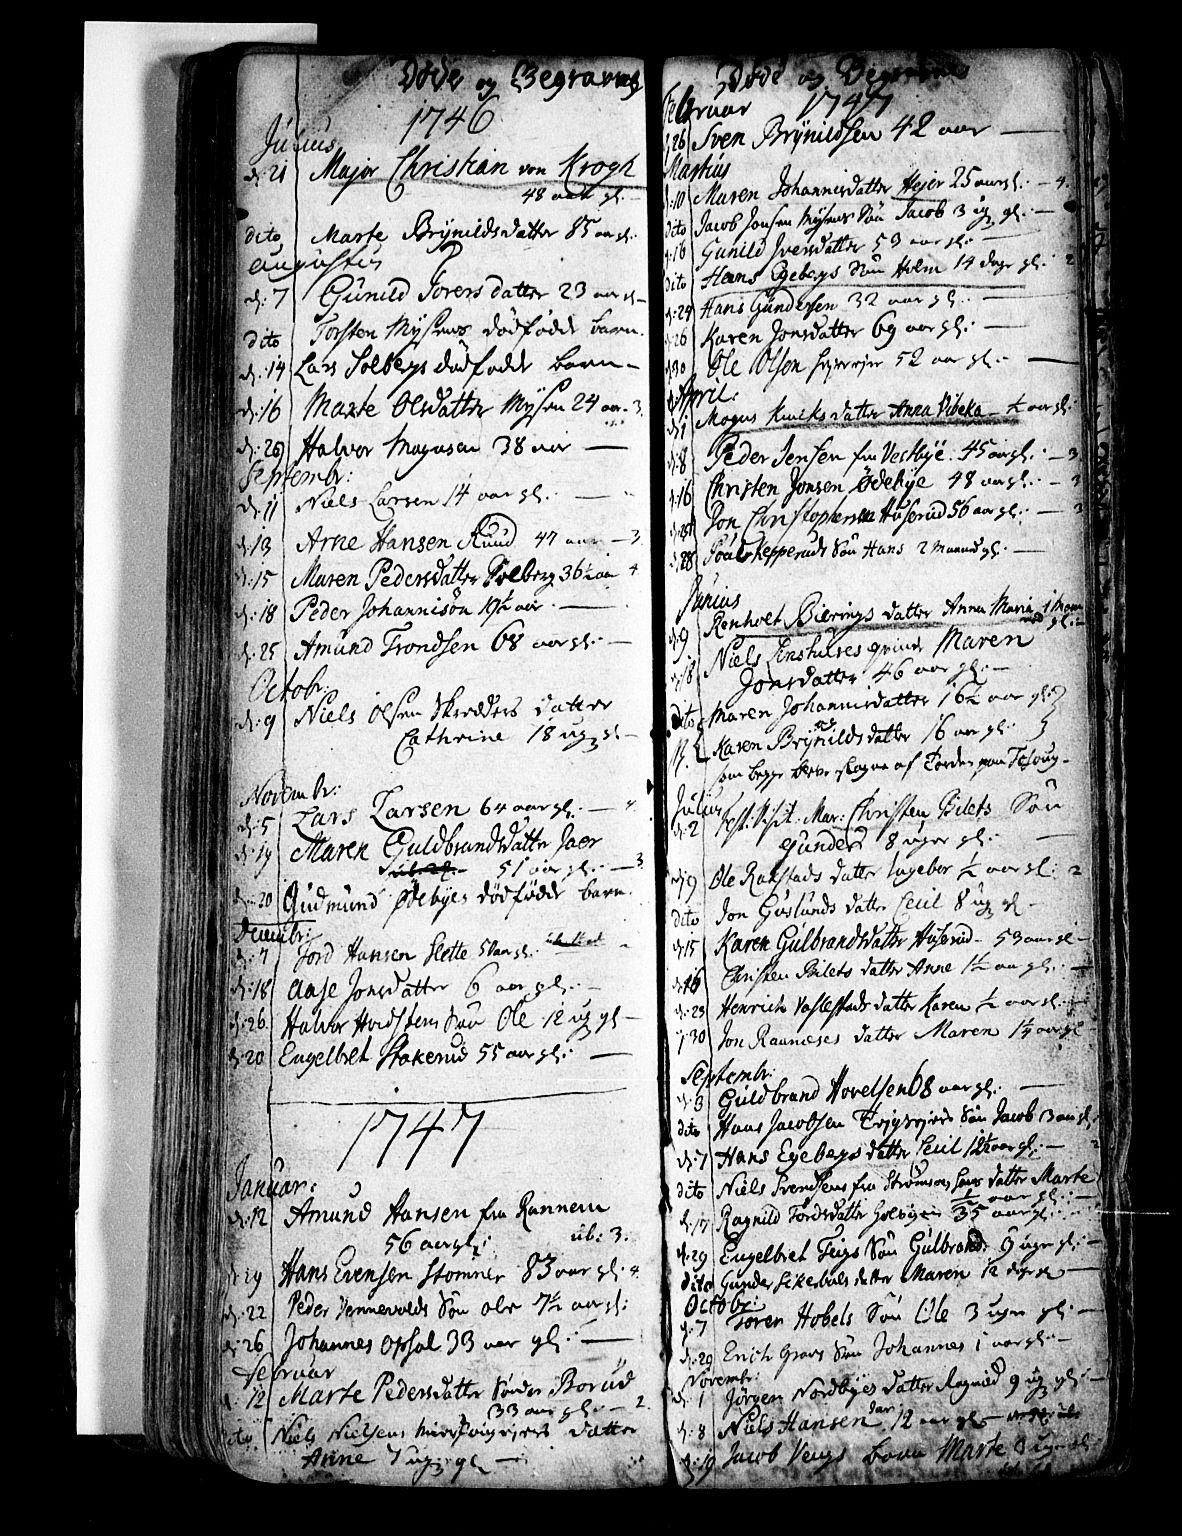 Døde og Begravne
1746
Julius
d: 21 Major Christian von Krogh
48 aar gl:
dito Marte Brÿnildsdatter 85 aar gl:
Augustus
d: 7 Gunild Torersdatter 23 aar gl-
dito Torsten Mÿsens dødfødde barn
d: 14 Lars Solbergs dødfødde barn-
d: 16 Marte Olsdatter Mÿsen 24 aar - 3.
d: 28 Halvor Magnusen 38 aar
Septembr:
d: 11 Niels Larsen 14 aar gl:
d: 13 Arne Hansen Ruud 47 aar - 3
d: 15 Maren Pedersdatter Solberg 36½ aar 4
d: 18 Peder Johannisøn 19½ aar
d: 25 Amund Trondsen 68 aar gl:
Octobr
d: 9 Niels Olsen Skredders datter
Cathrine 18 ug gl-
Novembr:
d: 5 Lars Larsen 64 aar gl:
d: 19 Maren Guldbrandsdatter Jaer
51 aar gl: 3
d: 20 Gudmund Ødebyes dødfødde barn
Decembr:
d: 7 Tord Hansen Slette aar gl:
d: 18 Aase Jonsdatter 6 aar gl:
d: 26 Halvor Søn Ole 12 ug gl-
d: 20 Engelbret Stakerud 55 aar gl:
1747
Januar:
d: 12 Amund Hansen fra Rannem
56 aar gl: ub: 3.
d: 19 Hans Evensen Stomner 83 aar gl: 4
d: 22 Peder Vennevolds Søn Ole 7½ aar gl:
d: 26 Johannes Opsal 33 aar gl:
Februar
d: 12 Marte Pedersdatter Sønder Borud
33 aar gl: - 2.
dito Niels Nielsens datter
Anne 7 ug gl
Døde og Begravne
Februar 1747
d: 26 Sven Brÿnildsen 42 aar
Martius
d: 10 Maren Johannisdatter Hejer 25 aar gl: - 4.
dito Jacob Jonsen Mÿsens Søn Jacob 3 ug gl:
d: 16 Gunild Iversdatter 53 aar gl:
dito Hans Egebergs Søn Holm 14 dage gl: 2
d: 24 Hans Gundersen 32 aar gl:
d: 26 Karen Jonsdatter 69 aar gl:
d: 30 Ole Olsen 52 aar gl:
April:
d: 1 Mogns datter Anna Vibeka - ½ aar gl:
d: 8 Peder Jensen fra Vestbÿe 45 aar gl: - 3
d: 16 Christen Jonsen Ødebÿe 48 aar gl: - 3
d: 25 Jon Christophersen Huserud 56 aar gl: - 3
d: 28 Poul Kepperuds Søn Hans 2 maaned gl:
Junius
d: 9 Renholt Bierings datter Anna Maria 1 Maaned gl:
d: 18 Niels qvinde Maren
Jonsdatter 46 aar gl:
dito Maren Johannisdatter 16½ aar gl:
Karen Brÿnildsdatter 16 aar gl:
som begge bleve slagne af Torden paa
Julius
d: 2 Mar: Christen Bilets Søn
Gunder 8 uger gl:
d: 9 Ole Rakstads datter Ingebor ½ aar gl: 2
dito Jon Guslunds datter Cecil 8 ug gl
d: 15 Karen Gulbrandsdatter Huserud - 53 aar gl
d: 16 Christen Bilets datter Anne 1½ aar gl:
d: 23 Henrich datter Karen ½ aar gl:
d: 30 Jon Rauneses datter Maren 1½ aar gl
Septembr:
d: 3 Guldbrand Hovelsen 68 aar gl:
dito Hans Jacobsen Søn Jacob 3 aar gl:
d: 7 Hans Egebergs datter Cecil 12½ aar gl:
dito Niels Svendsens fra Strømsø datter Marte
½ aar gl:
d: 17 Ragnild Tordsdatter 35 aar gl:
d: 29 Engelbret Søn Gulbrand 9 uger gl:
dito Gunder datter Maren 12 dage gl
Octobr:
d: 7 Toren Hobels Søn Ole 3 uger gl:
d: 29 Erich Søn Johannes 1 aar gl:
Novembr:
d: 1 Jørgen Nordbÿes datter Ragnild 9 ug gl:
d: 8 Niels Hansen 12 aar gl:
d: 19 Jacob barn Marte 3 uger gl: